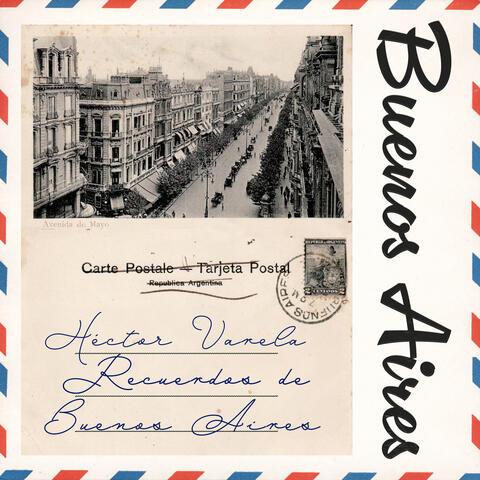 Avenida de Mayo
Carte Postale - Tarjeta Postal
Republica Argentina
REPUBLICA ARGENTINA
2 CENTAVOS 2
BUENOS AIRES
Héctor Varela
Recuerdos de
Buenos Aires
Buenos Aires